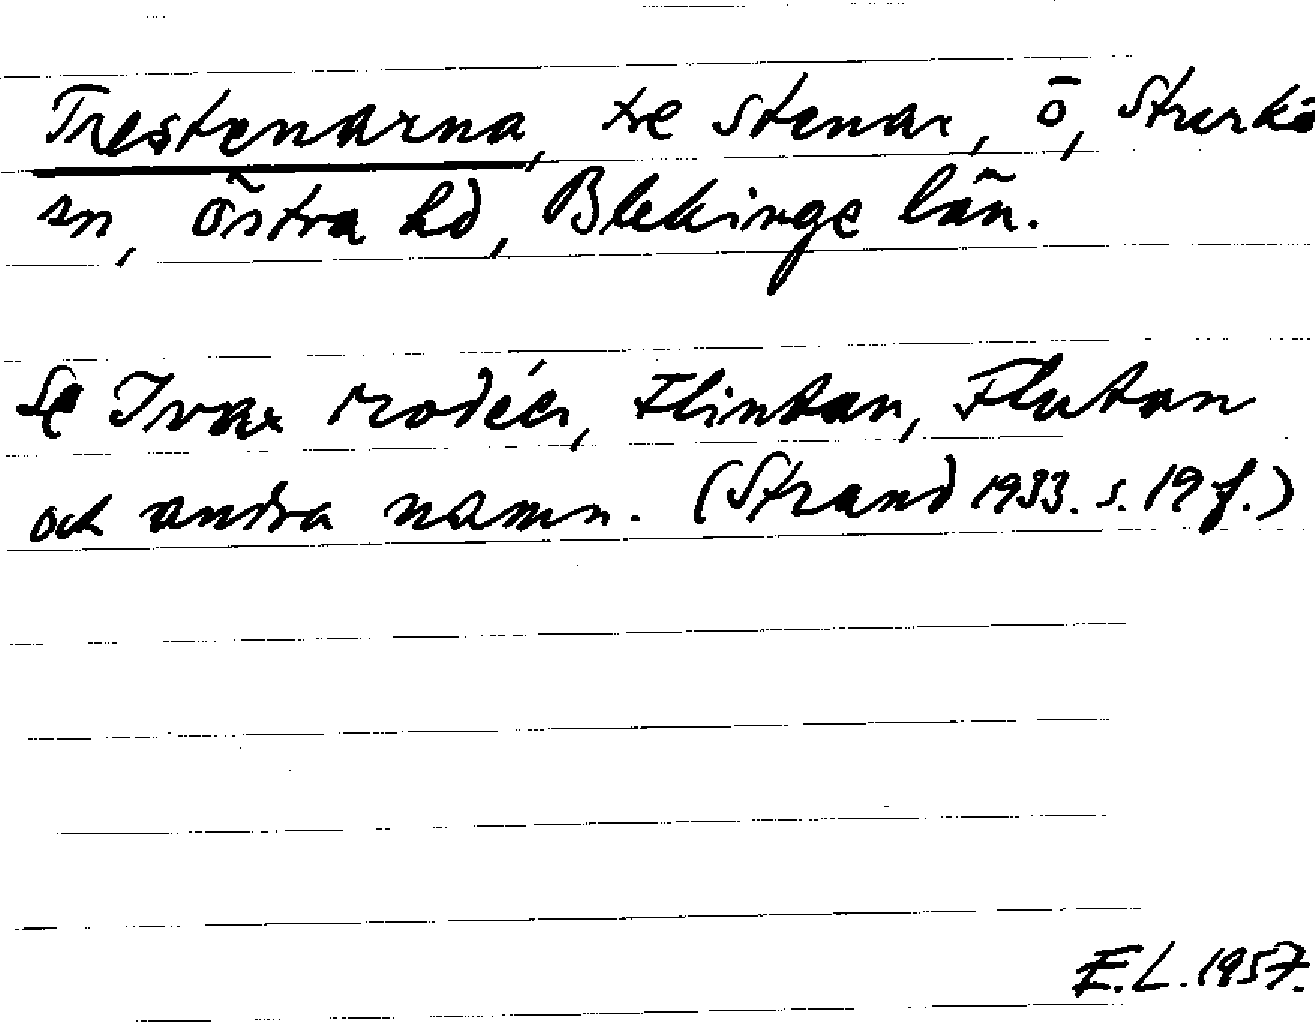 Trestenarna, tre stenar, ö, Sturkö
sn, Östra hd, Blekinge län.
Se Ivar Modéer, Flintan, Flutan
och andra namn. (Strand 1933. s. 19 f.)
E.L. 1957.